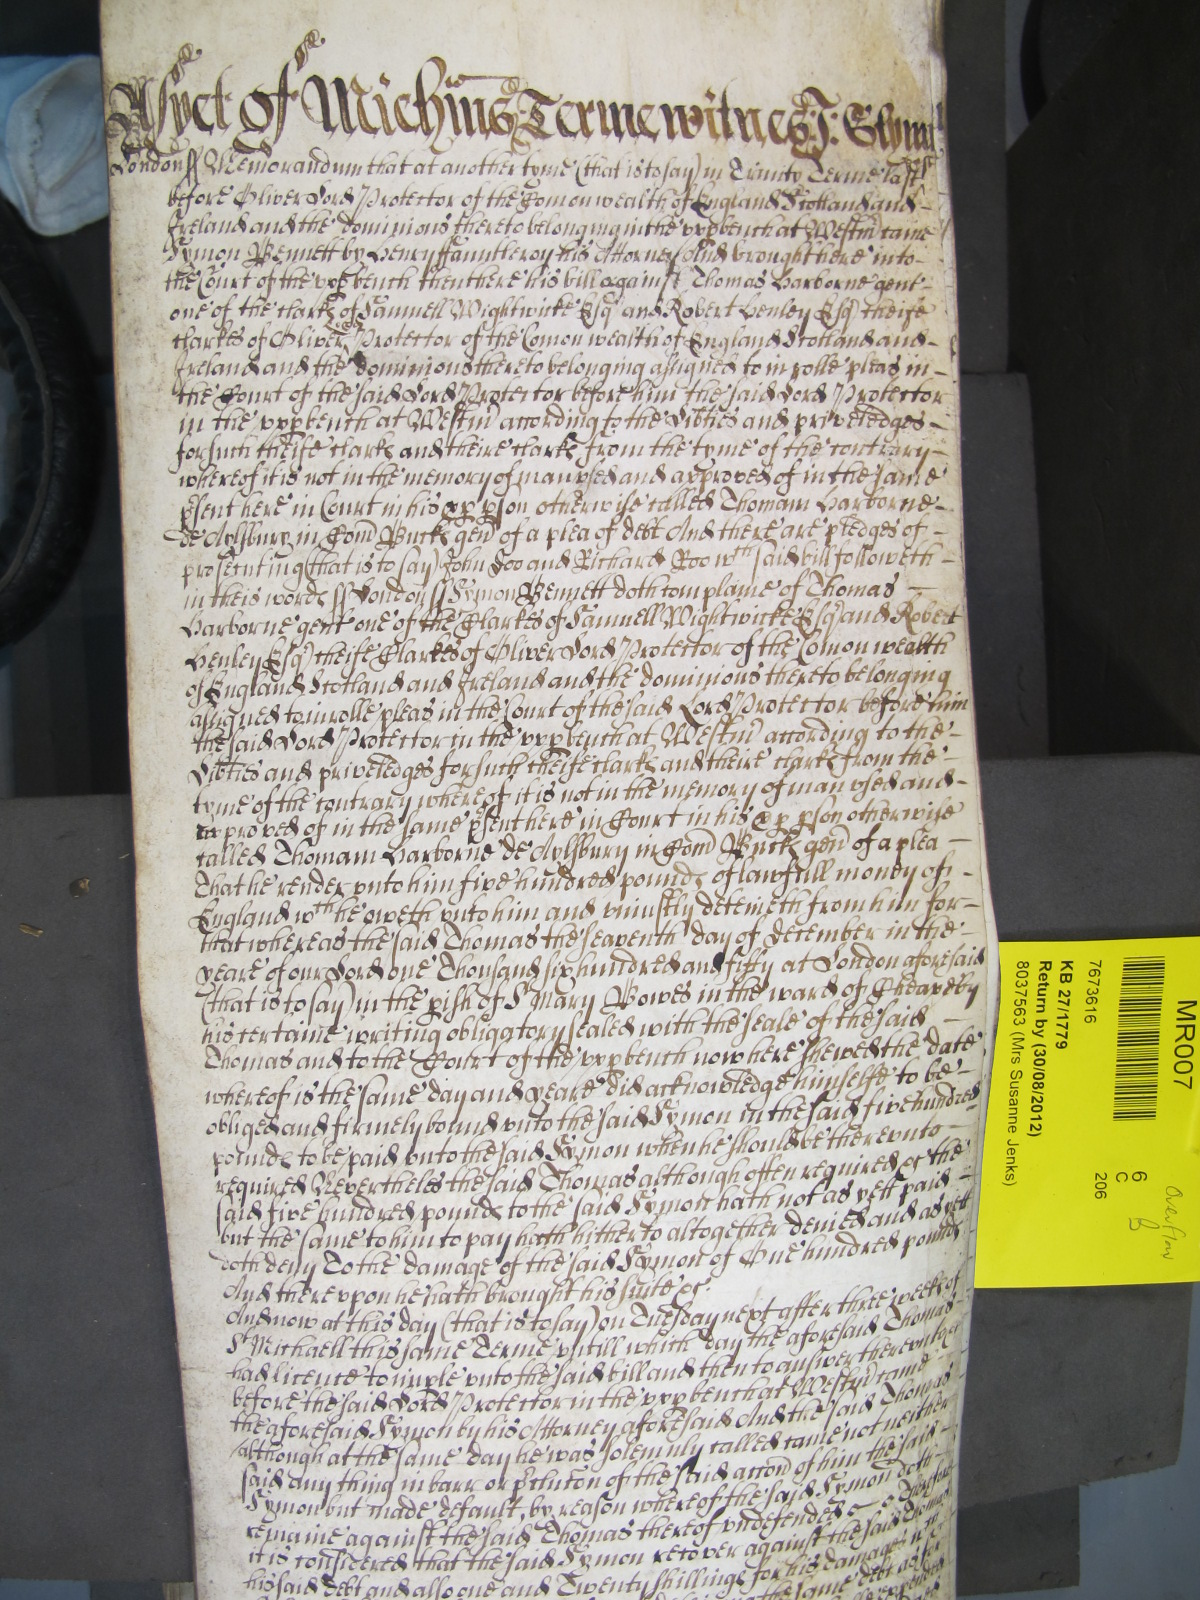 As yet of Michms Terme witnes J: Glynn
London ss Memorandum that at another tyme (that is to say) in Trinity Terme last
before Oliver Lord Protector of the Comon wealth of England Scotland and
Ireland and the dominions thereto belonging in the uppbench at Westm came
Symon Bennett by Henry ffauntleroy his Attorney And brought here into
the Court of the uppbench then there his bill against Thomas Harborne gent
one of the clarks of Samuell Wightwicke Esq and Robert Henley Esq cheife
clarkes of Oliver Lord Protector of the Comon wealth of England Scotland and
Ireland and the dominions thereto belonging assigned to inrolle pleas in
the Court of the said Lord Protector before him the said Lord Protector
in the uppbench at Westm according to the Libties and priveledges
for such cheife clarks and theire clarks from the tyme of the contrary
whereof it is not in the memory of man used and approved of in the same
psent here in Court in his pp pson otherwise called Thomam Harborne
de Aylsbury in Com Bucks gen of a plea of debt And there are pledges of
prosecuting (that is to say) John Doo and Richard Roo wch said bill followeth
in theis words ss London ss Symon Bennett doth complaine of Thomas
Harborne gent one of the Clarkes of Samuell Wightwicke Esq and Robert
Henley Esq cheife Clarkes of Oliver Lord Protector of the Comon wealth
of England Scotland and Ireland and the dominions thereto belonging
assigned to inrolle pleas in the Court of the said Lord Protector before him
the said Lord Protector in the uppbench at Westm according to the
Libties and priveledges for such cheife clarks and theire clarks from the
tyme of the contrary whereof it is not in the memory of man used and
approved of in the same psent here in Court in his pp pson otherwise
called Thomam Harborne de Aylsbury in Com Bucks gen of a plea
That he render unto him five hundred pounds of lawfull money of
England wch he oweth unto him and uniustly deteineth from him for
that whereas the said Thomas the seaventh day of December in the
yeare of our Lord one Thousand six hundred and fifty at London aforesaid
(that is to say) in the pish of St Mary Bowes in the ward of Cheape by
his certaine writing obligatory sealed with the seale of the said
Thomas and to the Court of the uppbench now here shewed the date
whereof is the same day and yeare did acknowledge himselfe to be
obliged and firmely bound unto the said Symon in the said five hundred
pounds to be paid unto the said Symon when he should be thereunto
required Nevertheles the said Thomas although often required &c the
said five hundred pounds to the said Symon hath not as yett paid
but the same to him to pay hath hitherto altogether denied and as yett
doth deny To the damage of the said Symon of One hundred pounds
And thereupon he hath brought his suite &c
And now at this day (that is to say) on Tuesday next after three weeks of
St Michaell this same Terme untill which day the aforesaid Thomas
had licence to imple unto the said bill and then to answer thereunto &c
before the said Lord Protector in the uppbench at Westm came
the aforesaid Symon by his Attorney aforesaid And the said Thomas
although at the same day he was solemnly called came not neither
said any thing in barr or pclusion of the said accon of him the said
Symon but made default, by reason whereof the said Symon doth
remaine against the said Thomas thereof undefended &c Therefore
it is considered that the said Symon recover against the said Thomas
his said debt and also one and Twenty shillings for his damages
the same debt
MR007
7673616
KB 27/1779
Return by (30/08/2012)
8037563 (Mrs Susanne Jenks)
6
C
206
Overflow
B